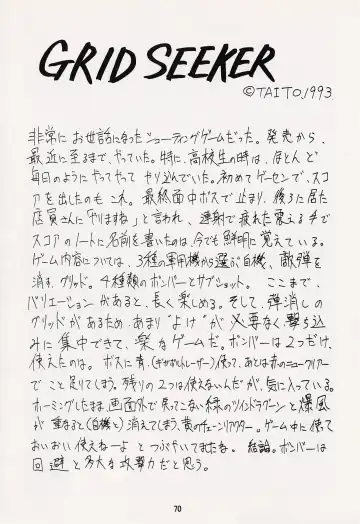 GRID SEEKER
©TAITO.1993
非常にお世話になったシューティングゲームだった。発売から、
最近に至るまで、やっていた。特に、高校生の時は、ほとんど
毎日のようにやってやってやり込んでいた。初めてゲーセンで、スコ
アを出したのもこれ。最終面中ボスで止まり、後ろに居た
店員さんに「やりますね」と言われ、連射で疲れた震える手で
スコアのノートに名前を書いたのは、今でも鮮明に覚えている。
ゲーム内容については、3種の軍用機から選ぶ自機、敵弾を
消す、グリッド。4種類のボンバーとサブショット。ここまで、
バリエーションがあると、長く楽しめる。そして、弾消しの
グリッドがあるため、あまり"よけ"が必要なく、撃ち込
みに集中できて、楽なゲームだ。ボンバーは2つだけ、
使えたのは。ボスに青、(ギガボルトレーザー)使って、あとは赤のニュークリアー
でこと足りてしまう。残りの2つは使えないんだが、気に入っている。
ホーミングしたまま、画面外で戻ってこない緑のツインドラグーンと爆風
が重なると(自機と)消えてしまう、黄のチェーンリアクター。ゲーム中に使って
おいおい使えねーよとつぶやいてましたね。結論。ボンバーは
回避と多大な攻撃力だと思う。
70